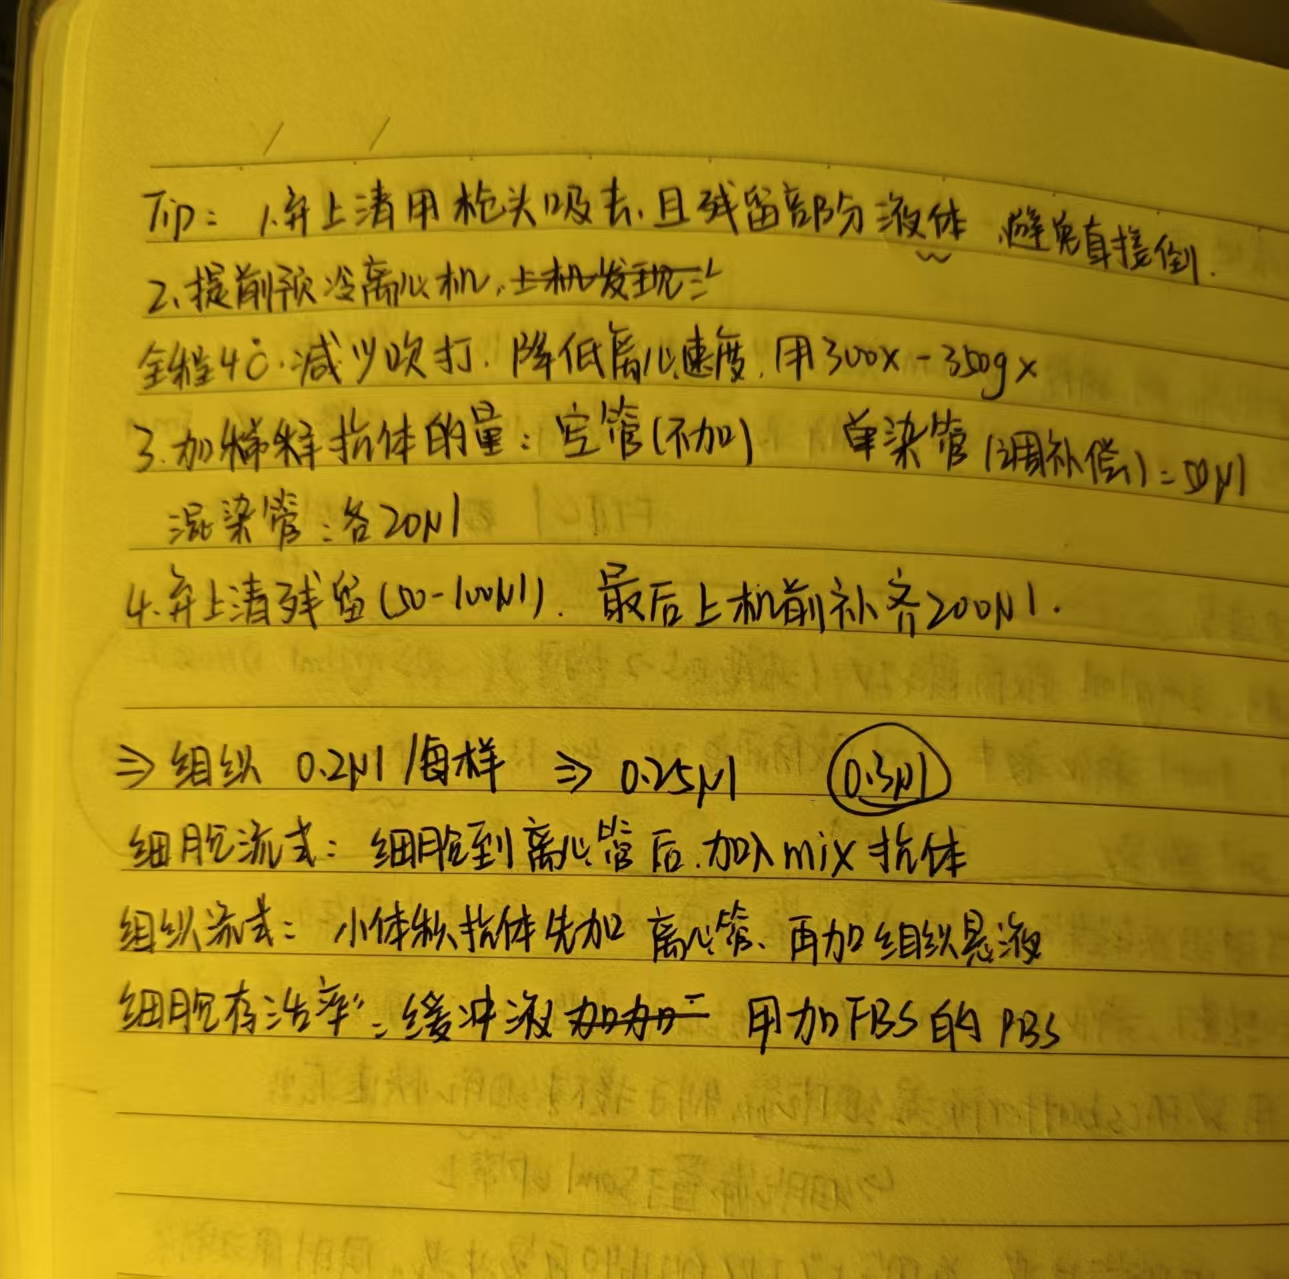 Tip: 1.弃上清用枪头吸去,且残留部分液体,避免直接倒.
2.提前预冷离心机,上机发现
全程4℃.减少吹打.降低离心速度,用300x-350gx
3.加稀释抗体的量:空管(不加) 单染管(调补偿)=50μl
混染管:各20μl
4.弃上清残留(50-100μl). 最后上机前补齐200μl.
⇒组织 0.2μl/每样 ⇒ 0.25μl 0.3μl
细胞流式:细胞到离心管后.加入mix抗体
组织流式:小体积抗体先加 离心管、再加组织悬液
细胞存活率:缓冲液加加 用加FBS的PBS